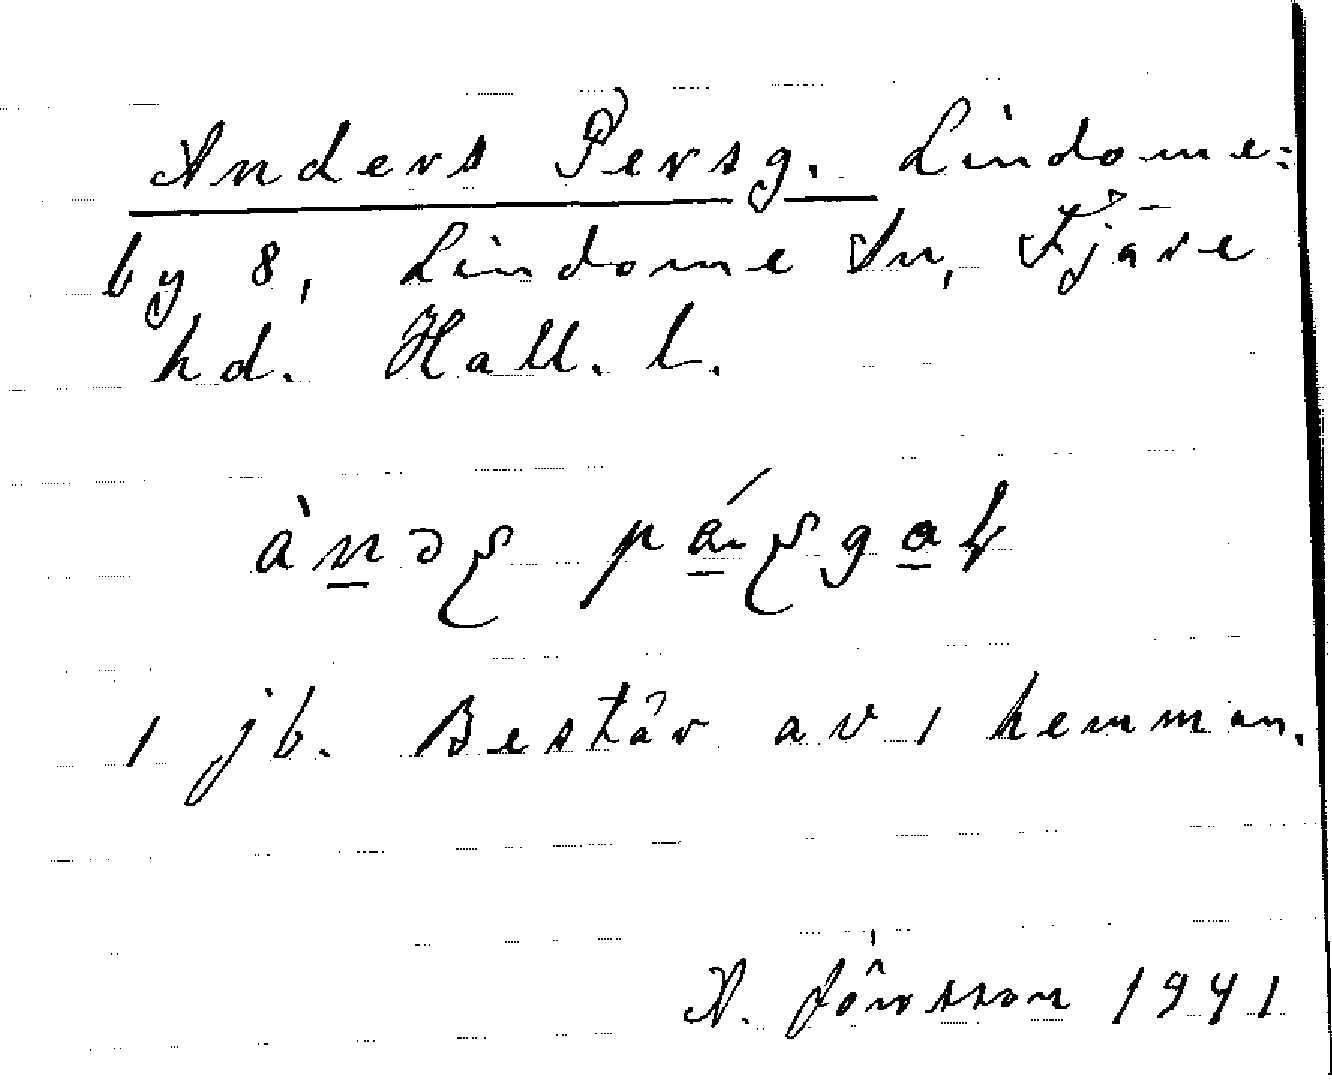 Anders Persg. Lindome=
by 8, Lindome sn, Fjäre
hd. Hall. l.
1 jb. Består av 1 hemman.
A. Jönsson 1941